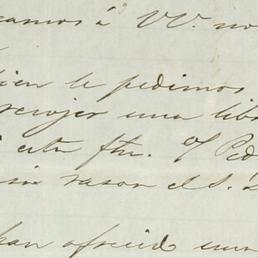 camos á VV. no
ien le pedimos
recojer una lib
esta fha. y Ped
sin rason el S.
han ofrecido una